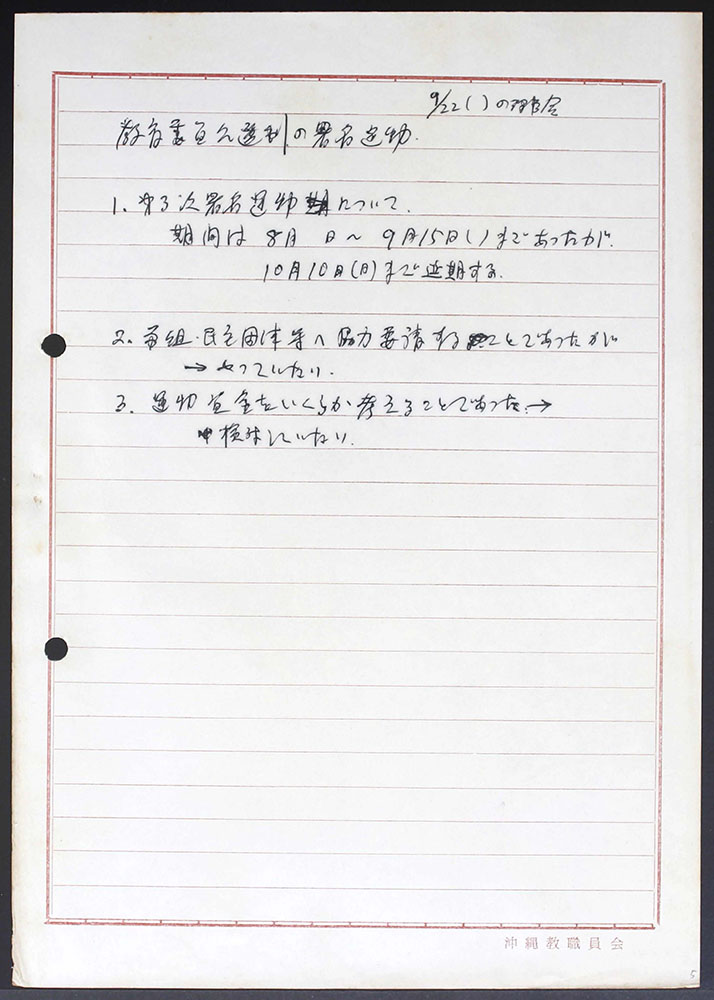 9/22( )の理事会
教育委員公選制の署名運動.
1. 第3次署名運動について.
期間は 8月 日〜9月15日( )まであったが.
10月10日(日)まで延期する.
2. 労組・民主団体等へ協力要請することであったが
→やっていない.
3. 運動資金をいくらか考えることであった.→
検討していない.
沖縄教職員会
5